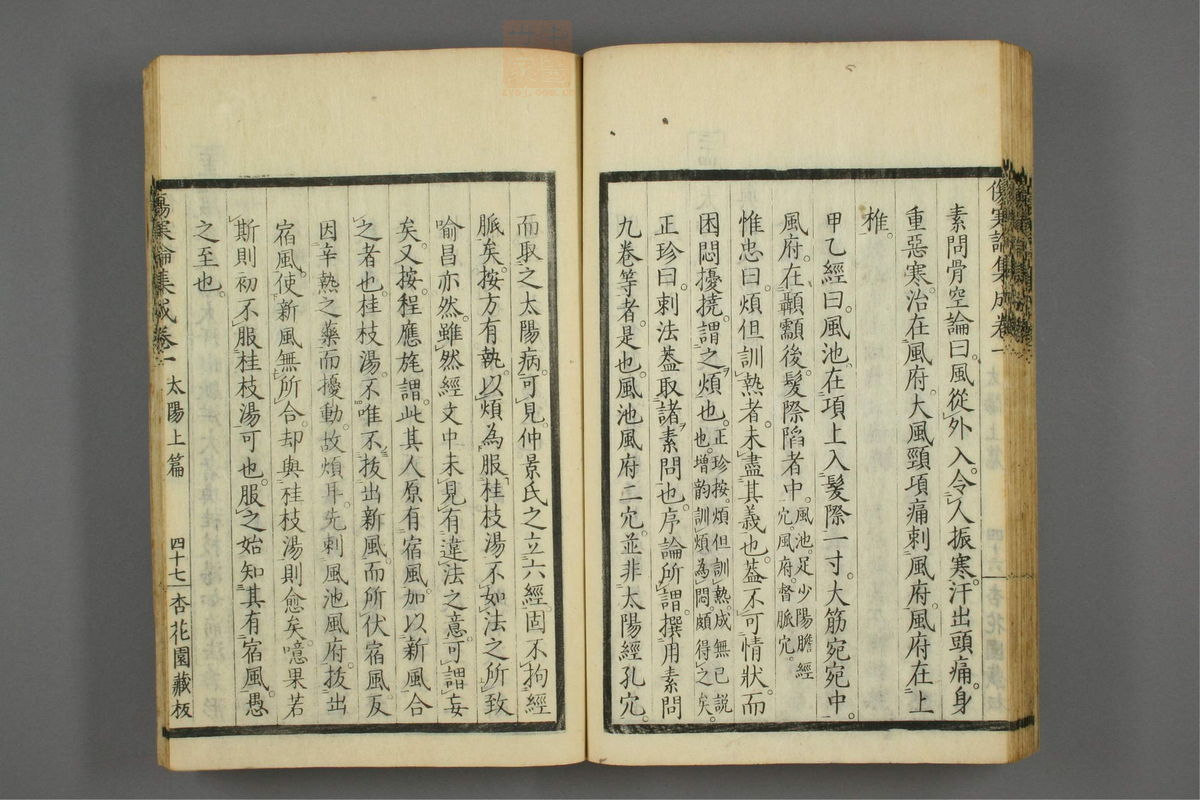 傷寒論集成卷一
素問骨空論曰。風從外入。令人振寒。汗出頭痛。身
重惡寒。治在風府。大風頸項痛。刺風府。風府在上
椎。
甲乙經曰。風池。在項上入髮際一寸。大筋宛宛中。
風府。在顳顬後。髮際陷者中。風池。足少陽膽經穴。風府。督脈穴。
惟忠曰。煩但訓熱者。未盡其義也。蓋不可情狀。而
困悶擾撓。謂之煩也。正珍按。煩但訓熱。成無已說也。增韵訓煩為悶。頗得之矣。
正珍曰。刺法蓋取諸素問也。序論所謂撰用素問
九卷等者。是也。風池風府二穴。並非太陽經孔穴。
而取之太陽病。可見仲景氏之立六經。固不拘經
脈矣。按方有執。以煩為服桂枝湯不如法之所致
喻昌亦然。雖然經文中未見有違法之意。可謂妄
矣。又按。程應旄謂。此其人原有宿風。加以新風合
之者也。桂枝湯。不唯不拔出新風。而所伏宿風。反
因辛熱之藥而擾動。故煩耳。先刺風池風府。拔出
宿風。使新風無所合。却與桂枝湯則愈矣。噫果若
斯則初不服桂枝湯可也。服之始知其有宿風。愚
之至也。
傷寒論集成卷一 太陽上篇 四十七 杏花園藏板